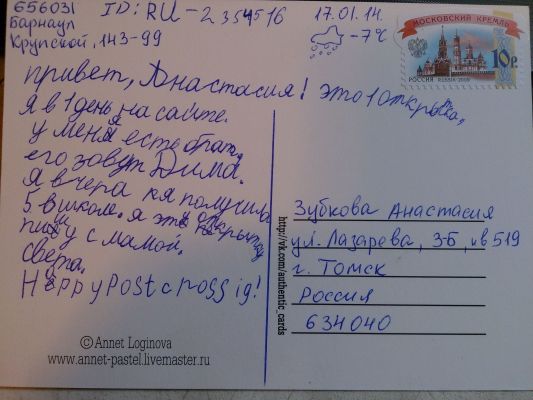 656031
Барнаул
Крупской, 143-99
ID: RU-2354516
17.01.14.
-7°C
МОСКОВСКИЙ КРЕМЛЬ
10р
РОССИЯ RUSSIA 2009
привет, Анастасия! это 1 открытка,
я в 1 день на сайте.
у меня есте брат,
его зовут Дима.
я вчера получила
5 в школе. я эту открытку
пишу с мамой.
света.
Happy Postcrossig!
Зубкова Анастасия
ул. Лазарева, 3-Б, кв 519
г. Томск
Россия
634040
http://vk.com/authentic_cards
© Annet Loginova
www.annet-pastel.livemaster.ru